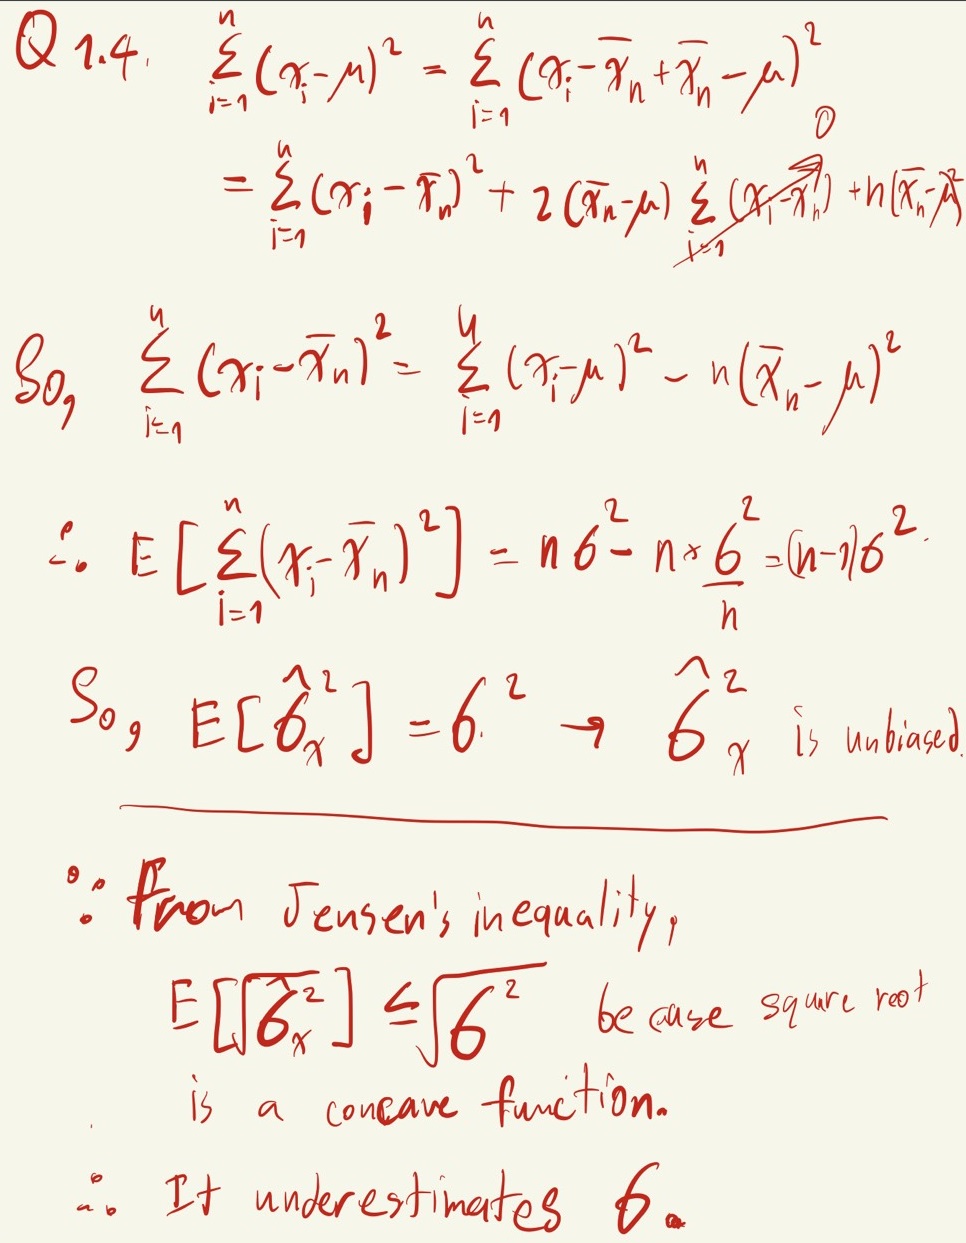 Q 1.4. Σ_{i=1}^{n} (x_i - μ)² = Σ_{i=1}^{n} (x_i - x̄_n + x̄_n - μ)²
= Σ_{i=1}^{n} (x_i - x̄_n)² + 2(x̄_n - μ) Σ_{i=1}^{n} (x_i - x̄_n) → 0 + n(x̄_n - μ)²
So, Σ_{i=1}^{n} (x_i - x̄_n)² = Σ_{i=1}^{n} (x_i - μ)² - n(x̄_n - μ)²
∴ E[Σ_{i=1}^{n} (x_i - x̄_n)²] = nσ² - n × σ²/n = (n-1)σ².
So, E[σ̂_x²] = σ² → σ̂_x² is unbiased.
∵ from Jensen's inequality,
E[√σ̂_x²] ≤ √σ² because square root
is a concave function.
∴ It underestimates σ.